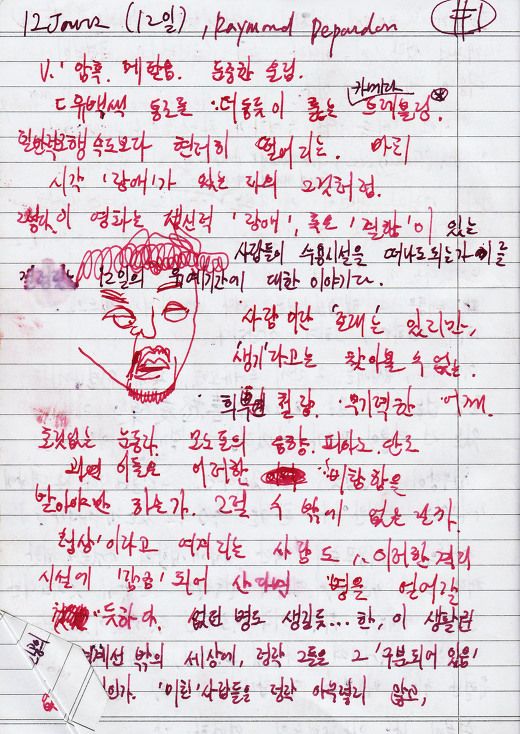 12 Jours (12일), Raymond Depardon #1
V.! 암흑. 메말음. 둔중한 울림.
카메라
유백색 통로를 더듬듯이 훑는 트래블링.
일반적 보행 속도보다 현저히 떨어지는. 마치
시각 '장애'가 있는 자의 그것처럼.
이 영화는 정신적 '장애', 혹은 '질환'이 있는
사람들이 수용시설을 떠나도 되는가 이를
12일의 유예기간에 대한 이야기다.
사람이란 '존재'는 있지만,
'생기'라고는 찾아볼 수 없는.
희뿌연 컬러. 무기력한 어깨.
초점없는 눈동자. 모노톤의 음향. 피아노. 단조
과연 이들은 이러한 비참함을
받아야만 하는가. 그럴 수 밖에 없는 걸까.
정상'이라고 여겨지는 사람도 이러한 격리
시설에 '감금'되어 산다면 병을 얻어갈
듯하다. 없던 병도 생길듯... 한, 이 생활관
경계선 밖의 세상에, 정작 그들은 그 '구분되어 있음'
인가. '미친'사람들을 정작 아우르지 않고,